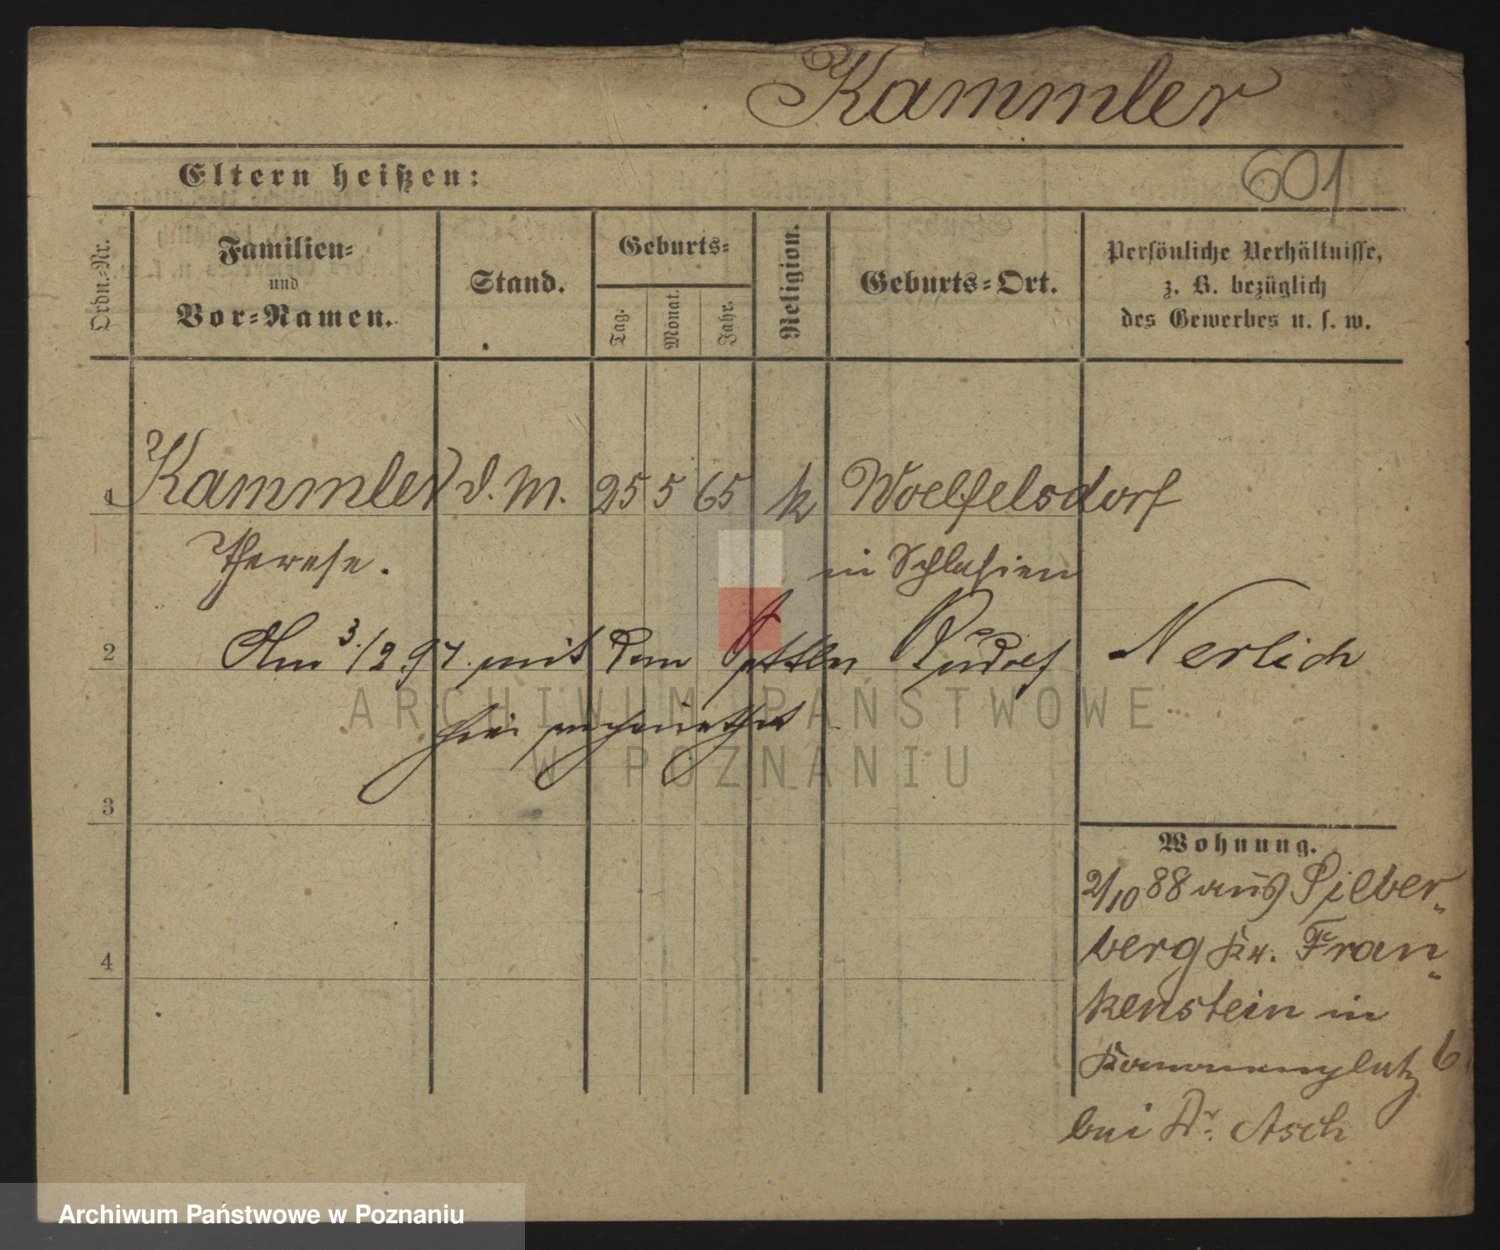 Kammler
601
Eltern heißen:
Ordn.-Nr.
Familien-
und
Vor-Namen.
Stand.
Geburts-
Tag.
Monat.
Jahr.
Religion.
Geburts-Ort.
Persönliche Verhältnisse,
z. B. bezüglich
des Gewerbes u. s. w.
1 Kammler d. M. 25 5 65 k Woelfelsdorf
Therese. in Schlesien
2 Am 3./2 97. mit dem Rudolf Nerlich
hier verheirathet
ARCHIWUM PAŃSTWOWE
W POZNANIU
3
Wohnung.
2/10 88 aus Silber-
berg Kr. Fran-
4
kenstein in
Kanonenplatz 6
bei Dr. Asch
Archiwum Państwowe w Poznaniu